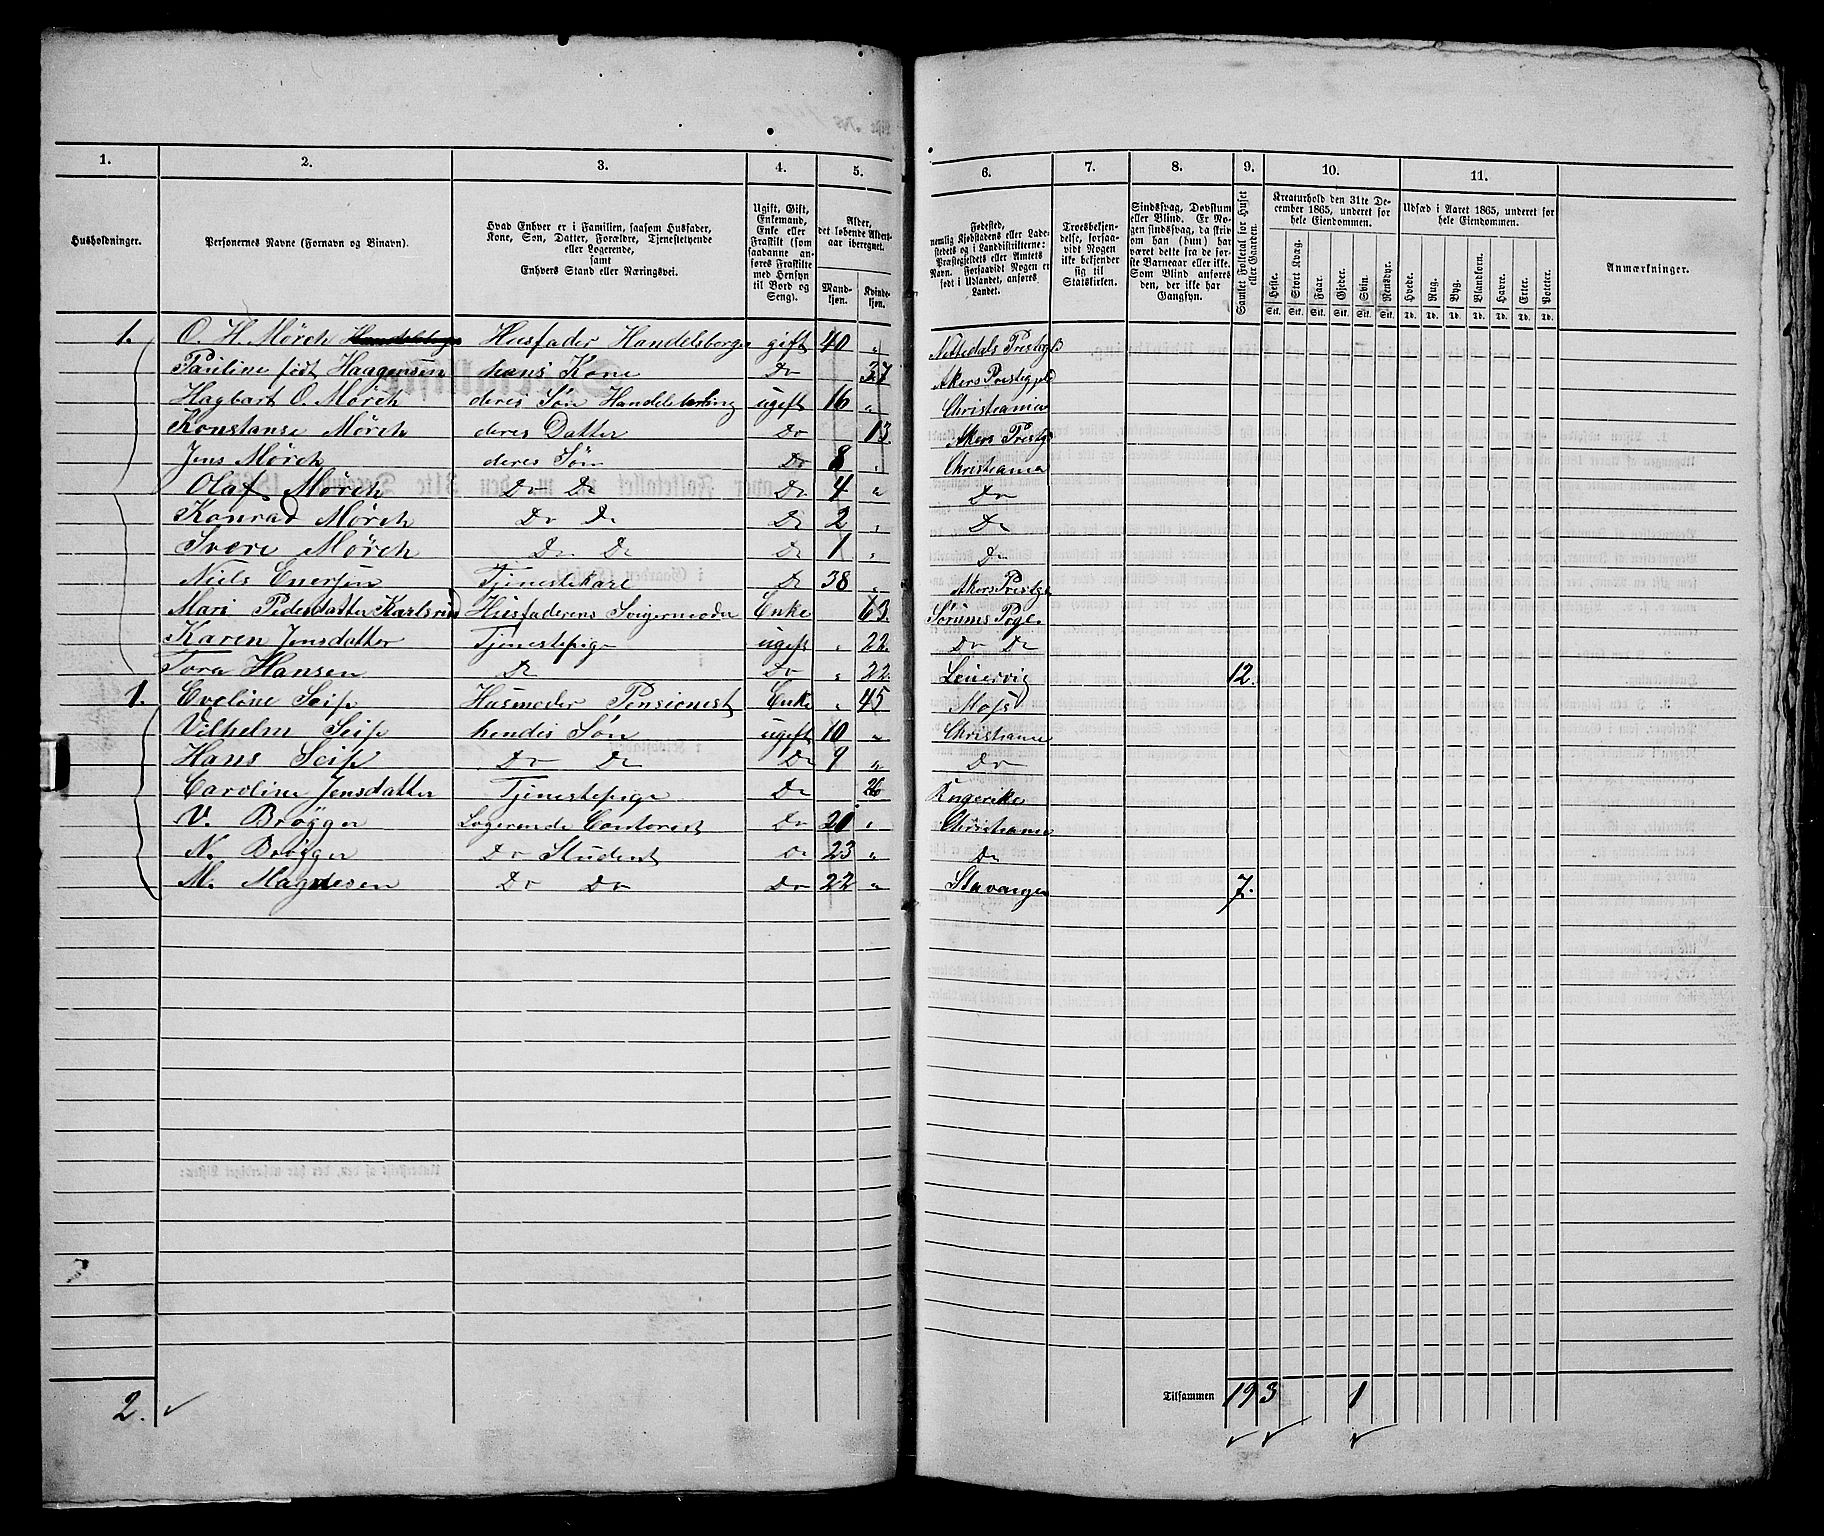 1. 2. 3. 4. 5. 6. 7. 8. 9. 10. 11.
Husholdninger.
Personernes Navne (Fornavn og Binavn).
Hvad Enhver er i Familien, saasom Husfader,
Kone, Søn, Datter, Forældre, Tjenestetyende
eller Logerende,
samt
Enhvers Stand eller Næringsvei.
Ugift, Gift,
Enkemand,
Enke eller
Fraskilt (som
saadanne an-
føres Fraskilte
med Hensyn
til Bord og
Seng).
Alder,
det løbende Alders-
aar iberegnet.
Mand-
kjøn.
Kvinde-
kjøn.
Fødested,
nemlig Kjøbstadens eller Lade-
stedets og i Landdistrikterne:
Præstegjeldets eller Amtets
Navn. Forsaavidt Nogen er
født i Udlandet, anføres
Landet.
Troesbekjen-
delse, forsaa-
vidt Nogen
ikke bekjender
sig til
Statskirken.
Sindssvag, Døvstum
eller Blind. Er No-
gen sindssvag, da skriv
om han (hun) har
været dette fra de før-
ste Barneaar eller ikke.
Som Blind anføres
den, der ikke har
Gangsyn.
Samlet Folketal for Huset
eller Gaarden.
Kreaturhold den 31te De-
cember 1865, underet for
hele Eiendommen.
Heste. Stort Kvæg. Faar. Gjeder. Svin. Rensdyr.
Stk. Stk. Stk. Stk. Stk. Stk.
Udsæd i Aaret 1865, underet for
hele Eiendommen.
Hvede. Rug. Byg. Blandkorn. Havre. Erter. Poteter.
Td. Td. Td. Td. Td. Td. Td.
Anmærkninger.
1. O. H. Mörch Husfader Handelsborge gift 40 " Nittedals Prestegj
Pauline födt Haagensen hans Kone Do 37 Akers Prestegjeld
Hagbart O. Mörch deres Sön Handelslærling ugift 16 " Christiania
Konstanse Mörch deres Datter Do 13 Akers Prestgj
Jens Mörch deres Sön Do 8 " Christiania
Olaf Mörch Do Do Do 4 " Do
Konrad Mörch Do Do Do 2 " Do
Svere Mörch Do Do Do 1 " Do
Niels Enersen Tjenestekarl Do 38 " Akers Prestgj
Mari Pedersdatter Husfaderens Svigermoder Enke 63. Sörums Pgl.
Karen Jensdatter Tjenestepige ugift " 22. Do Do
Tora Hansen Do Do " 22. 12.
1. Eveline Seip Husmoder Pensionist Enke " 45 Moss
Vilhelm Seip hendes Sön ugift 10 " Christiania
Hans Seip Do Do Do 9 " Do
Caroline Jensdatter Tjenestepige Do 26 Ringerike
V. Brögger Logerende Contorist Do 20 " Christiania
N. Brögger Do Student Do 23 " Do
M. Magnesen Do Do Do 22 " Stavanger 7.
2. Tilsammen 19 3 1